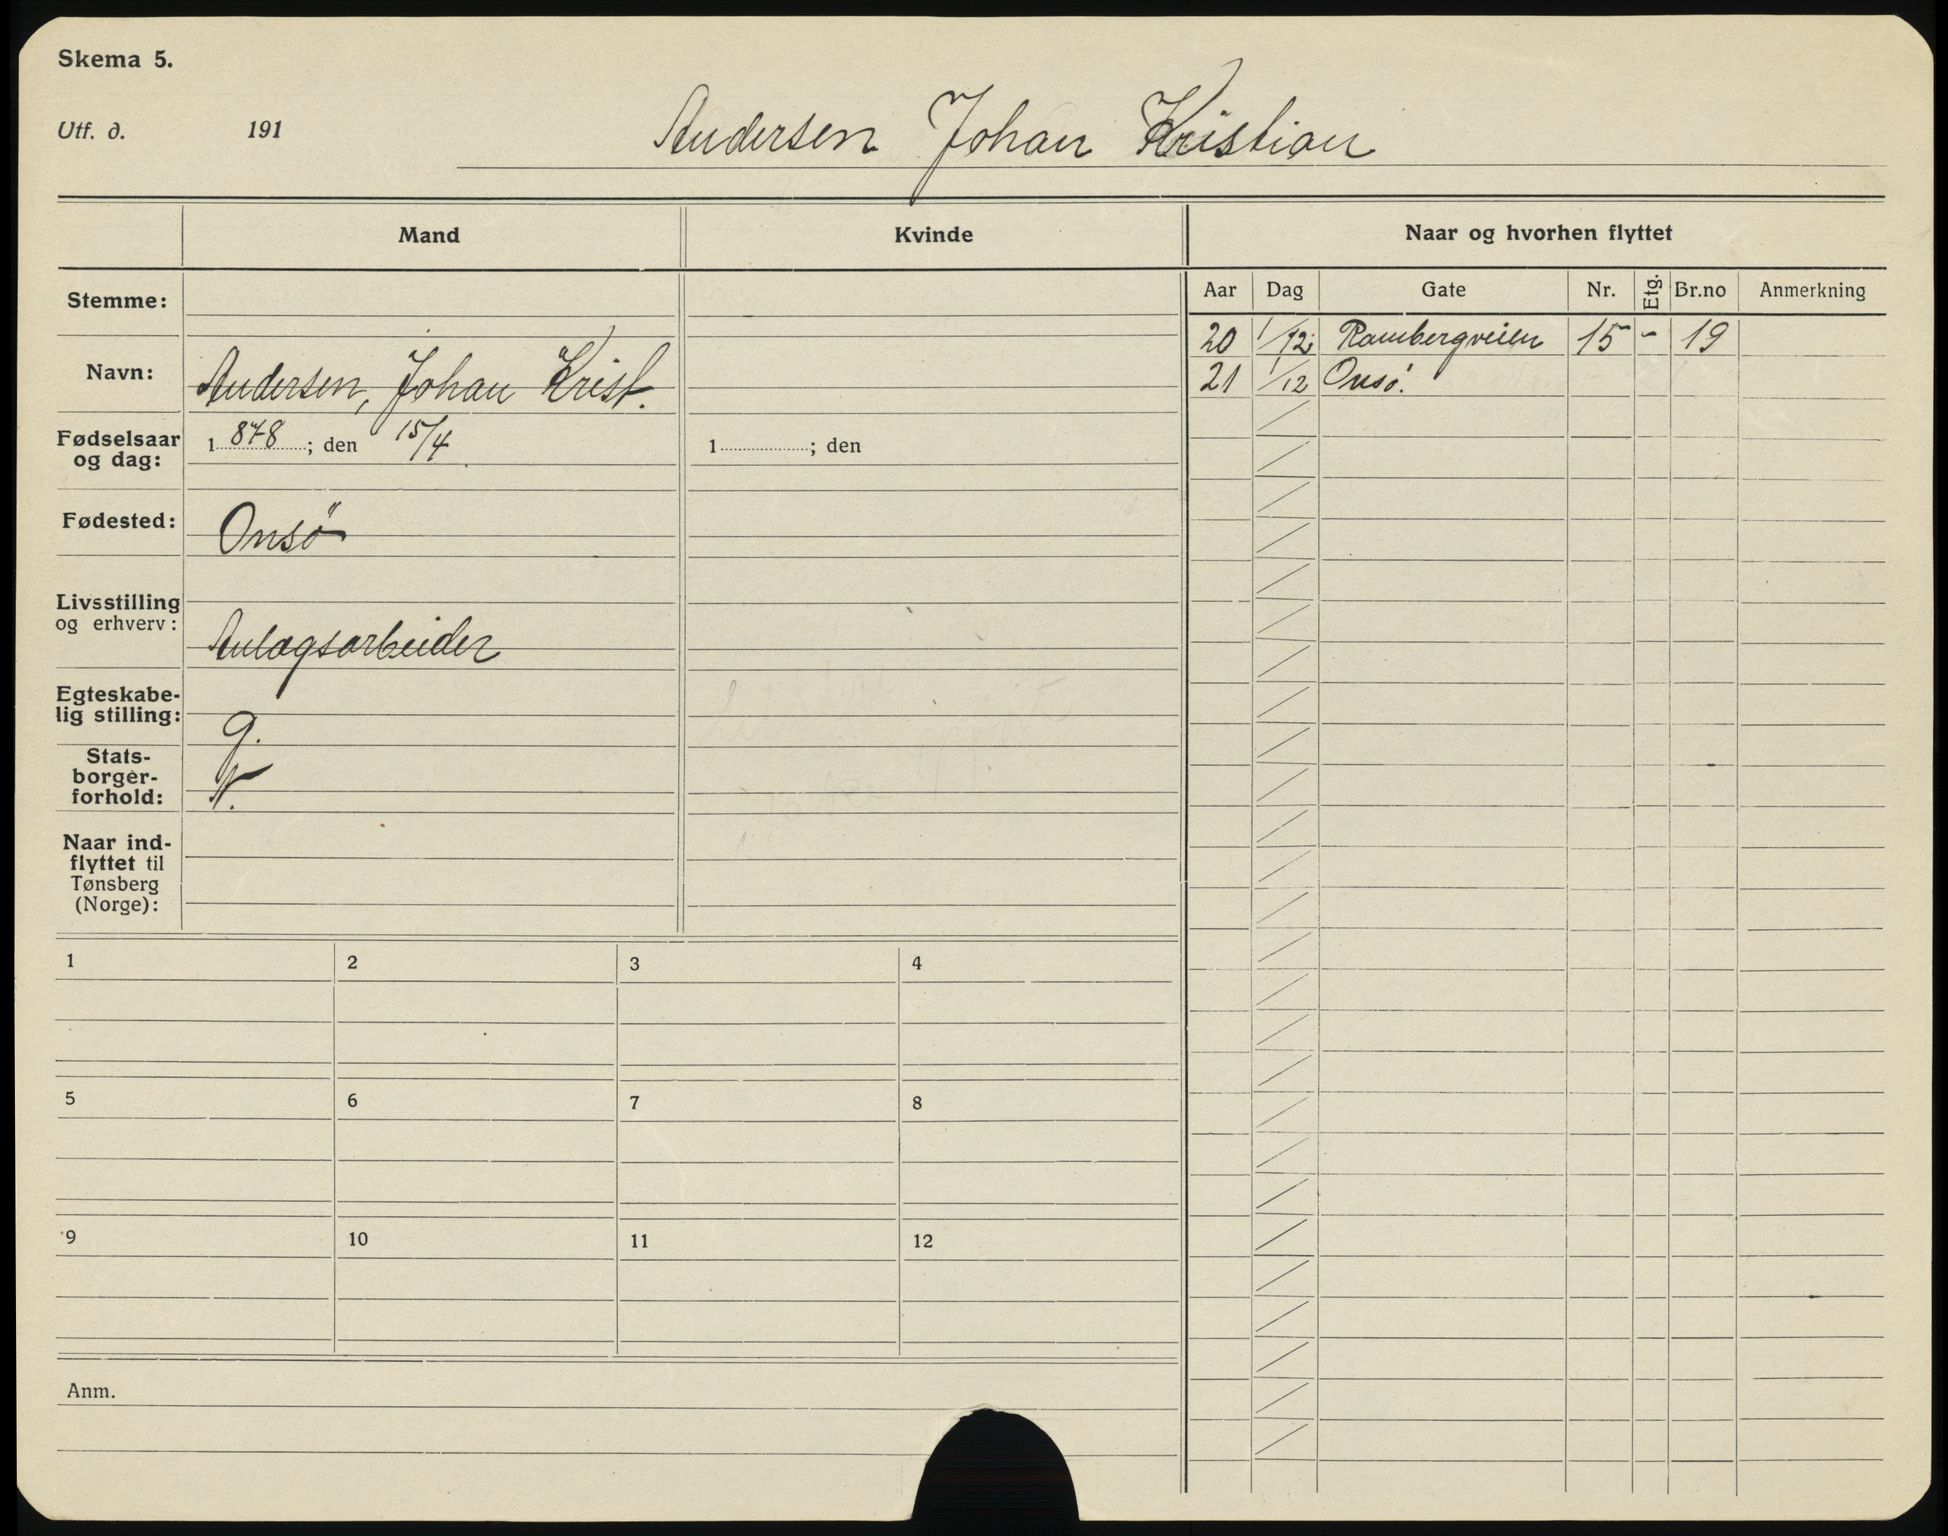 Skema 5.
Utf. d. 191
Andersen Johan Kristian
Mand
Kvinde
Naar og hvorhen flyttet
Stemme:
Navn: Andersen, Johan Krist.
Fødselsaar og dag: 1 878 ; den 15/4
1 ; den
Fødested: Onsö
Livsstilling
og erhverv: Anlægsarbeider
Egteskabe-
lig stilling: g.
Stats-
borger-
forhold: N.
Naar ind-
flyttet til
Tønsberg
(Norge):
Aar Dag Gate Nr. Etg. Br.no Anmerkning
20 1/12 Rambergveien 15 - 19
21 1/12 Onsö.
1 2 3 4
5 6 7 8
9 10 11 12
Anm.